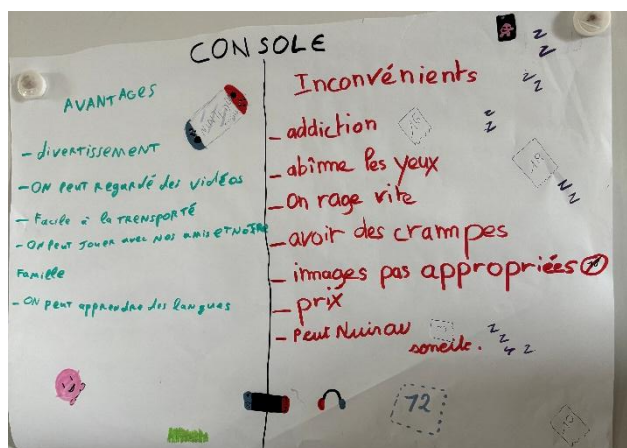 CONSOLE
AVANTAGES
- divertissement
- ON peut regardé des vidéos
- Facile à la TRANSPORTÉ
- ON peut jouer avec nos amis et notre
Famille
- ON peut apprendre des langues
Inconvénients
- addiction
- abîme les yeux
- On rage vite
- avoir des crampes
- images pas appropriées
- prix
- Peut Nuir au
someile.
z
z
z
z
z
z
z
z
z
z
z
z
12